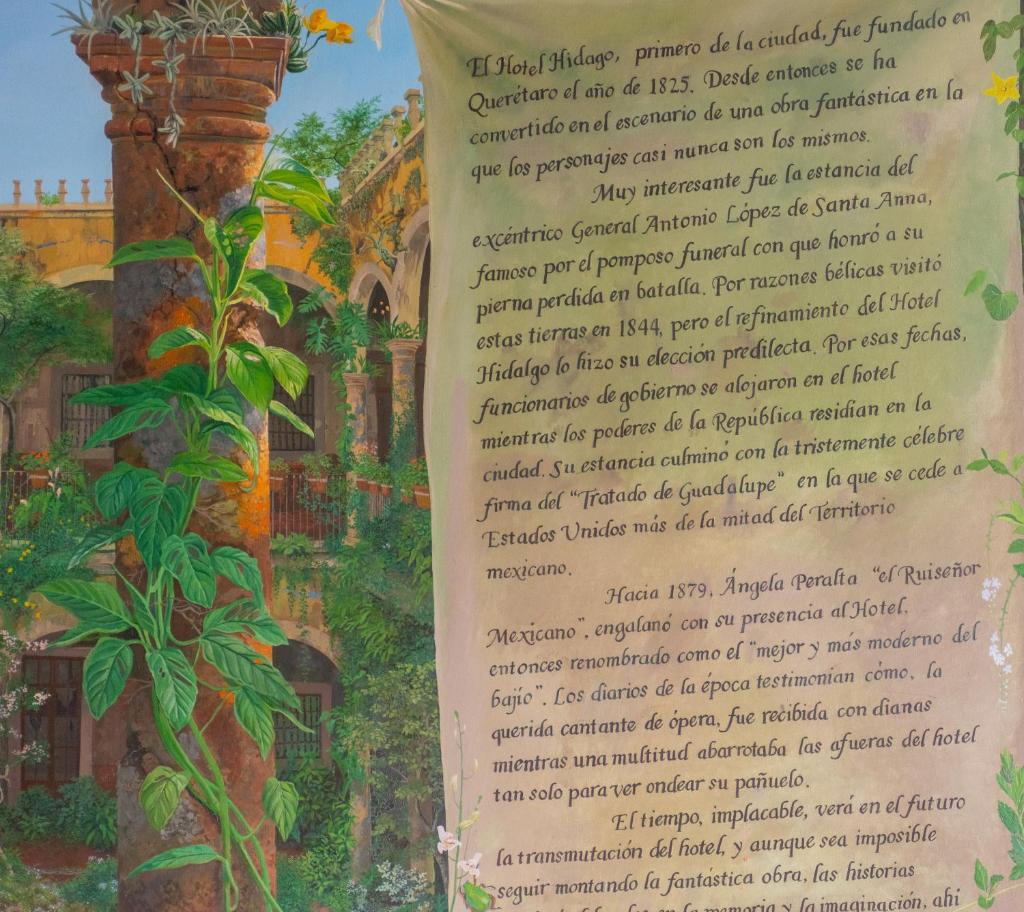 El Hotel Hidago, primero de la ciudad, fue fundado en
Querétaro el año de 1825. Desde entonces se ha
convertido en el escenario de una obra fantástica en la
que los personajes casi nunca son los mismos.
Muy interesante fue la estancia del
excéntrico General Antonio López de Santa Anna,
famoso por el pomposo funeral con que honró a su
pierna perdida en batalla. Por razones bélicas visitó
estas tierras en 1844, pero el refinamiento del Hotel
Hidalgo lo hizo su elección predilecta. Por esas fechas,
funcionarios de gobierno se alojaron en el hotel
mientras los poderes de la República residían en la
ciudad. Su estancia culminó con la tristemente célebre
firma del "Tratado de Guadalupe" en la que se cede a
Estados Unidos más de la mitad del Territorio
mexicano.
Hacia 1879, Ángela Peralta "el Ruiseñor
Mexicano", engalanó con su presencia al Hotel,
entonces renombrado como el "mejor y más moderno del
bajío". Los diarios de la época testimonian cómo, la
querida cantante de ópera, fue recibida con dianas
mientras una multitud abarrotaba las afueras del hotel
tan solo para ver ondear su pañuelo.
El tiempo, implacable, verá en el futuro
la transmutación del hotel, y aunque sea imposible
seguir montando la fantástica obra, las historias
en la memoria y la imaginación, ahí